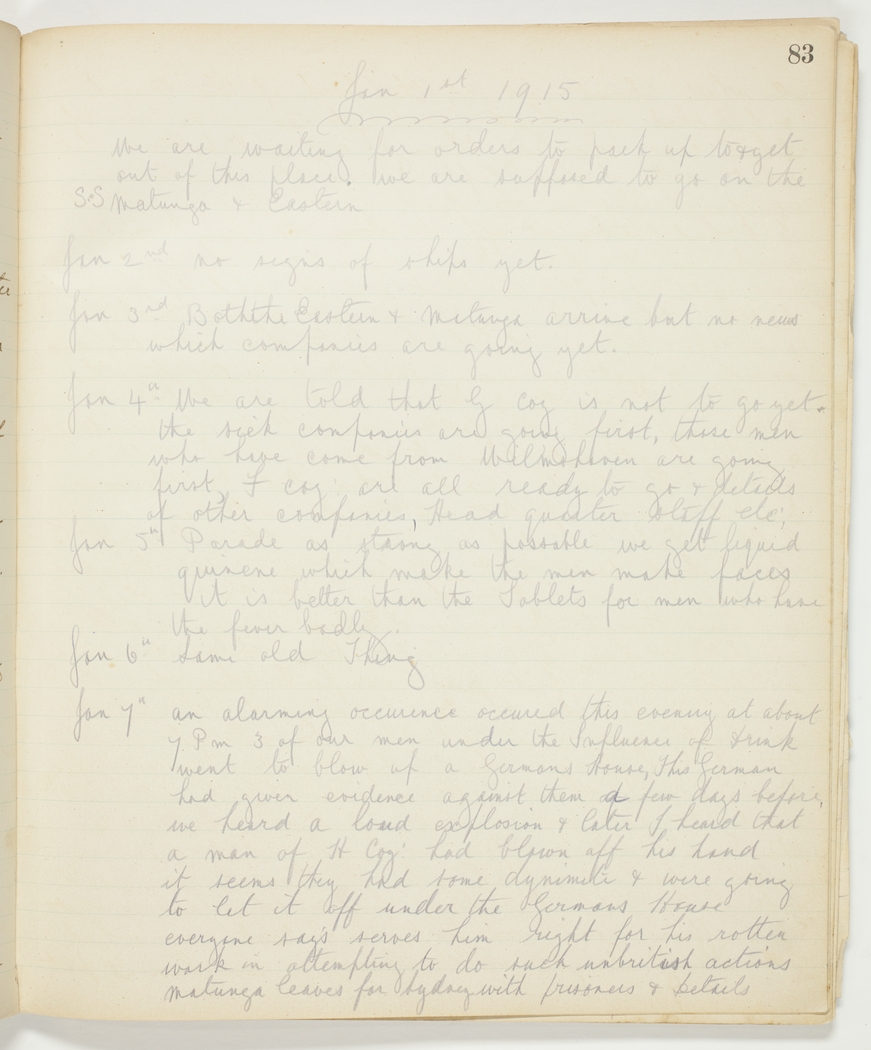 83
Jan 1st 1915
We are waiting for orders to pack up to & get
out of this place. we are supposed to go on the
S.S Matunga & Eastern
Jan 2nd no signs of ships yet.
Jan 3rd Both the Eastern & Matunga arrive but no news
which companies are going yet.
Jan 4th We are told that G coy is not to go yet.
the sick companies are going first, those men
who have come from Wilmshaven are going
first, F coy are all ready to go & details
of other companies, Head quarter staff etc;
Jan 5th Parade as strong as possable we get liquid
quinene which make the men make faces
it is better than the Tablets for men who have
the fever badly.
Jan 6th Same old Thing
Jan 7th an alarming occurence occured this evening at about
7 Pm 3 of our men under the Influence of drink
went to blow up a Germans House, This German
had given evidence against them a few days before,
we heard a loud explosion & later I heard that
a man of H Coy: had blown off his hand
it seems they had some dynimite & were going
to let it off under the Germans House
everyone says serves him right for his rotten
work in attempting to do such unbritish actions
Matunga leaves for Sydney with prisoners & Details